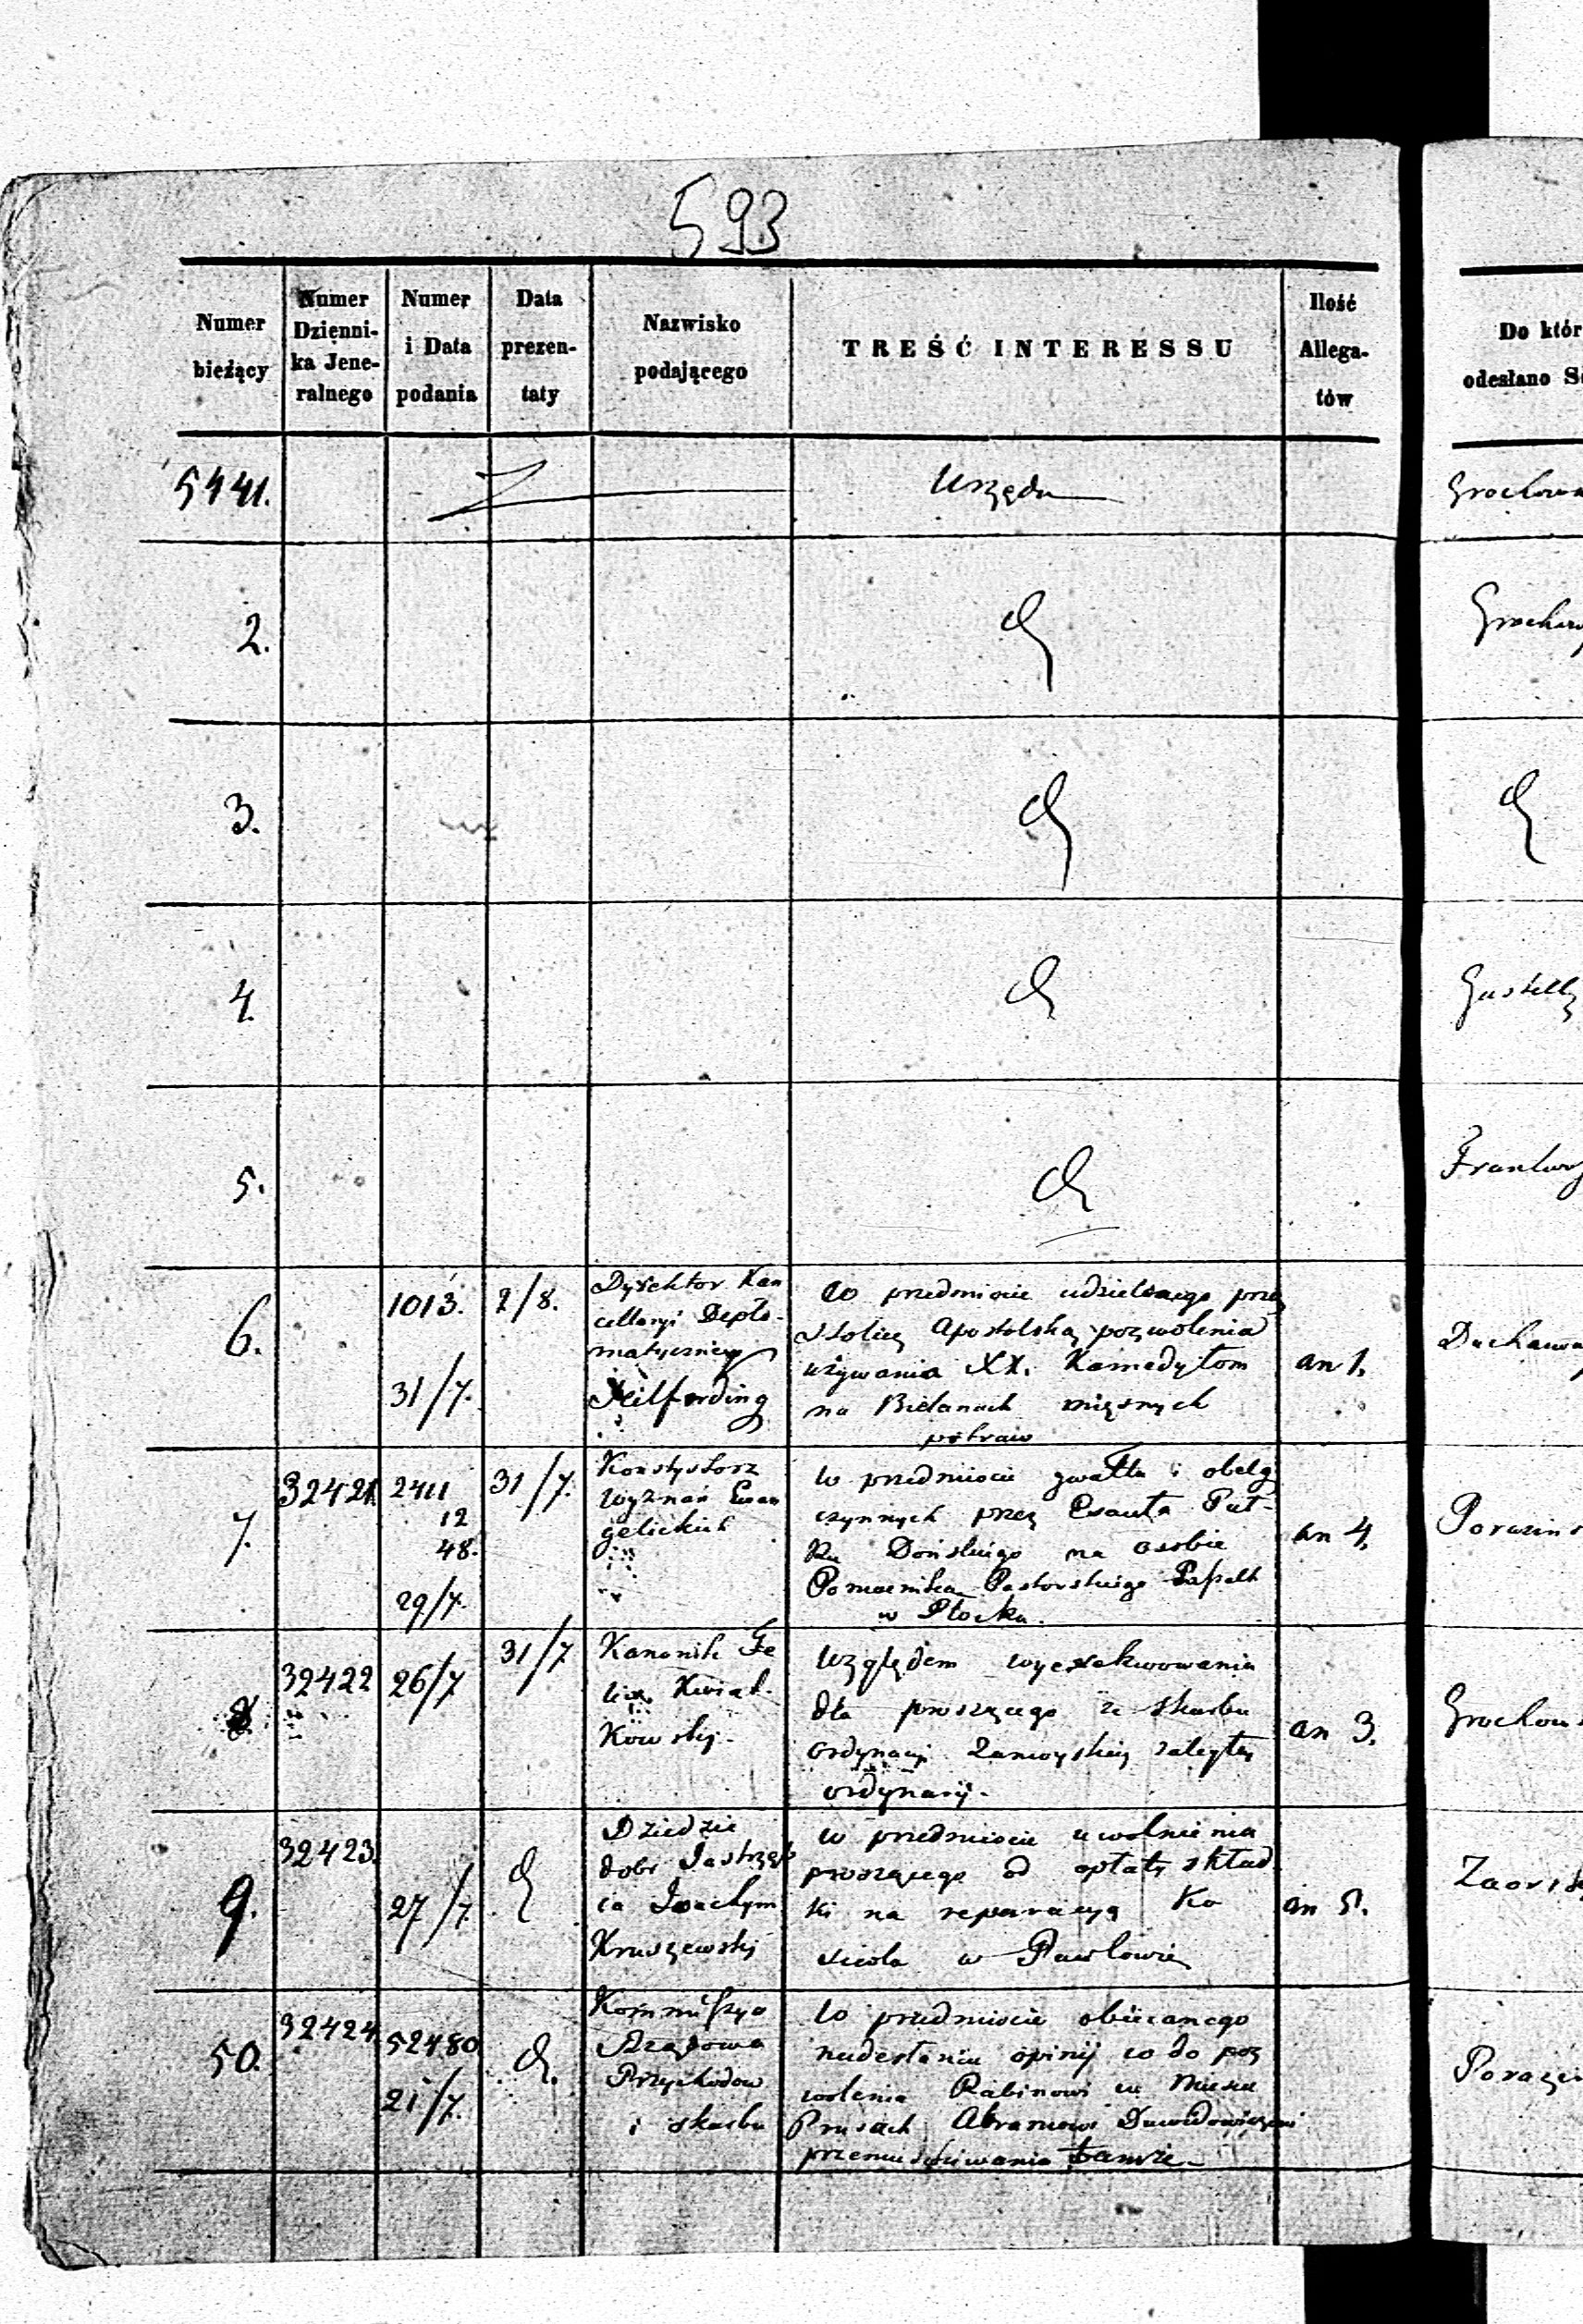 593
Numer bieżący
Numer Dzienni-ka Jene-ralnego
Numer i Data podania
Data prezen-taty
Nazwisko podającego
TREŚĆ INTERESSU
Ilość Allega-tów
Do któr
odesłano
5441.
Urzędu
Grochows
2.
3.
4.
5.
6.
1013.
31/7.
2/8.
Dyrektor Kan
cellaryi Depło-
matycznej
Hilferding
W przedmiocie udzielonego prze
Stolicę Apostolską pozwolenia
używania XX. Kamedyłom
na Bielanach mięsnych
potraw
an 1.
7.
32421.
2411
12
48.
29/7.
31/7.
Konsystorz
Wyznań Ewan
gelickich
W przedmiocie gwałtu i obelg
czynnych przez Esauła Puł-
ku Dońskiego na osobie
Pomocnika Pastorskiego
w Płocku.
an 4.
8
32422
26/7
31/7
Kanonik Fe
lix Kwiat-
kowski.
Względem wyexekwowania
dla proszącego ze skarbu
ordynacyi Zamoyskiej zaległej
ordynaryi.
an 3.
Grochows
9.
32423.
27/7.
Dziedzic
dobr Jastrzęb
ia Joachym
Kruszewski
W przedmiocie uwolnienia
proszącego od opłaty skład
ki na reparacyą Ko
scioła w Pawłowie
an 5.
50.
32424.
52480
21/7.
Kommissya
Rządowa
Przychodow
i skarbu
W przedmiocie obiecanego
nadesłania opinij co do poz
wolenia Rabinowi w Mieście
Prusach Abramowi Dawidowiczowi
przemieszkiwania tamże.